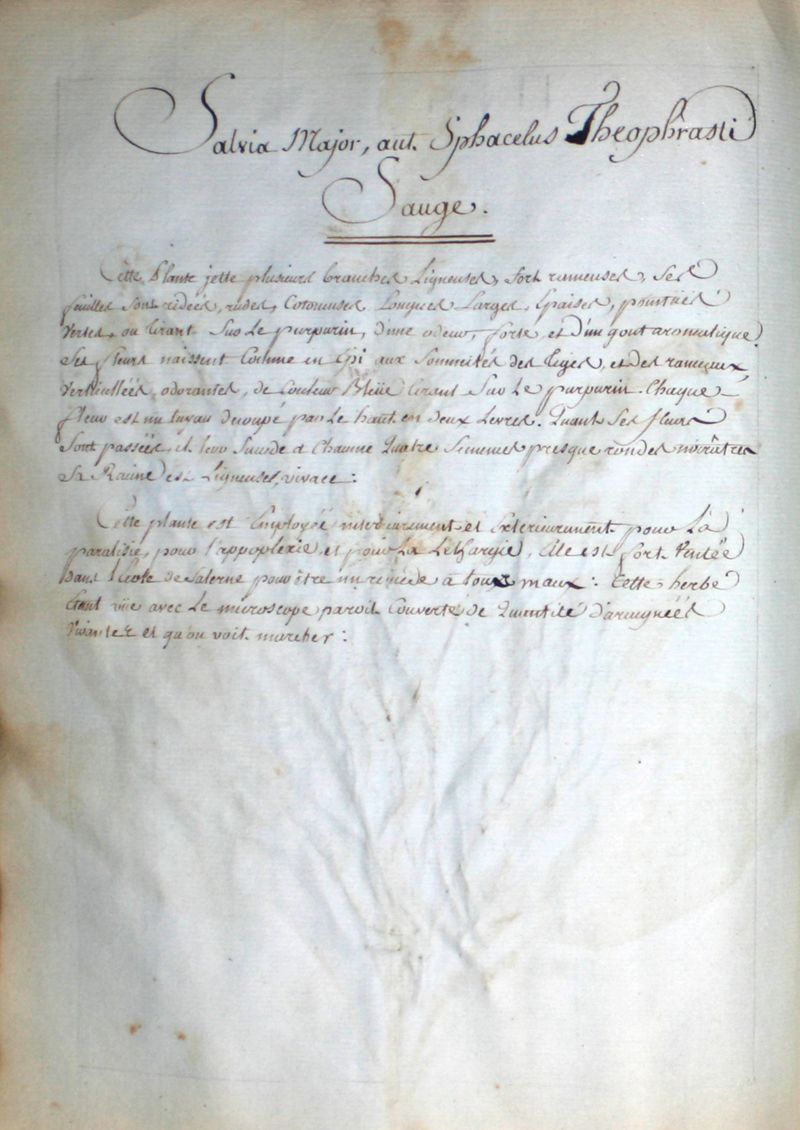 Salvia Major, aut. Sphacelus Theophrasti
Sauge.
Cette Plante jette plusieurs branches Ligneuses, fort rameuses, Ses
feuilles sont ridées, rudes, Cotoneuses, Longues, Larges, Epaises, pointües
Vertes, ou tirant Sur Le purpurin, d'une odeur, forte, et d'un gout aromatique.
Ses fleurs naissent Comme en Epi aux Sommités des tiges, et des rameaux
Verticillées, odorantes, de Couleur Bleüe tirant Sur Le purpurin. Chaque
fleur est un tuyau découpé par Le haut en deux Levres. Quant Ses fleurs
Sont passées, il leur Succede a Chacune Quatre Semences presque rondes noirâtres
Sa Racine est Ligneuse, vivace:
Cette plante est Employée interieurement et Exterieurement pour La
paralisie, pour l'appoplexie et pour La Lethargie, Elle est fort Ventée
dans l'Ecole de Salerne pour être un remede à toux maux: Cette herbe
Etant vüe avec Le microscope paroit Couverte de Quantité d'araignées
Vivantes et qu'on voit marcher: